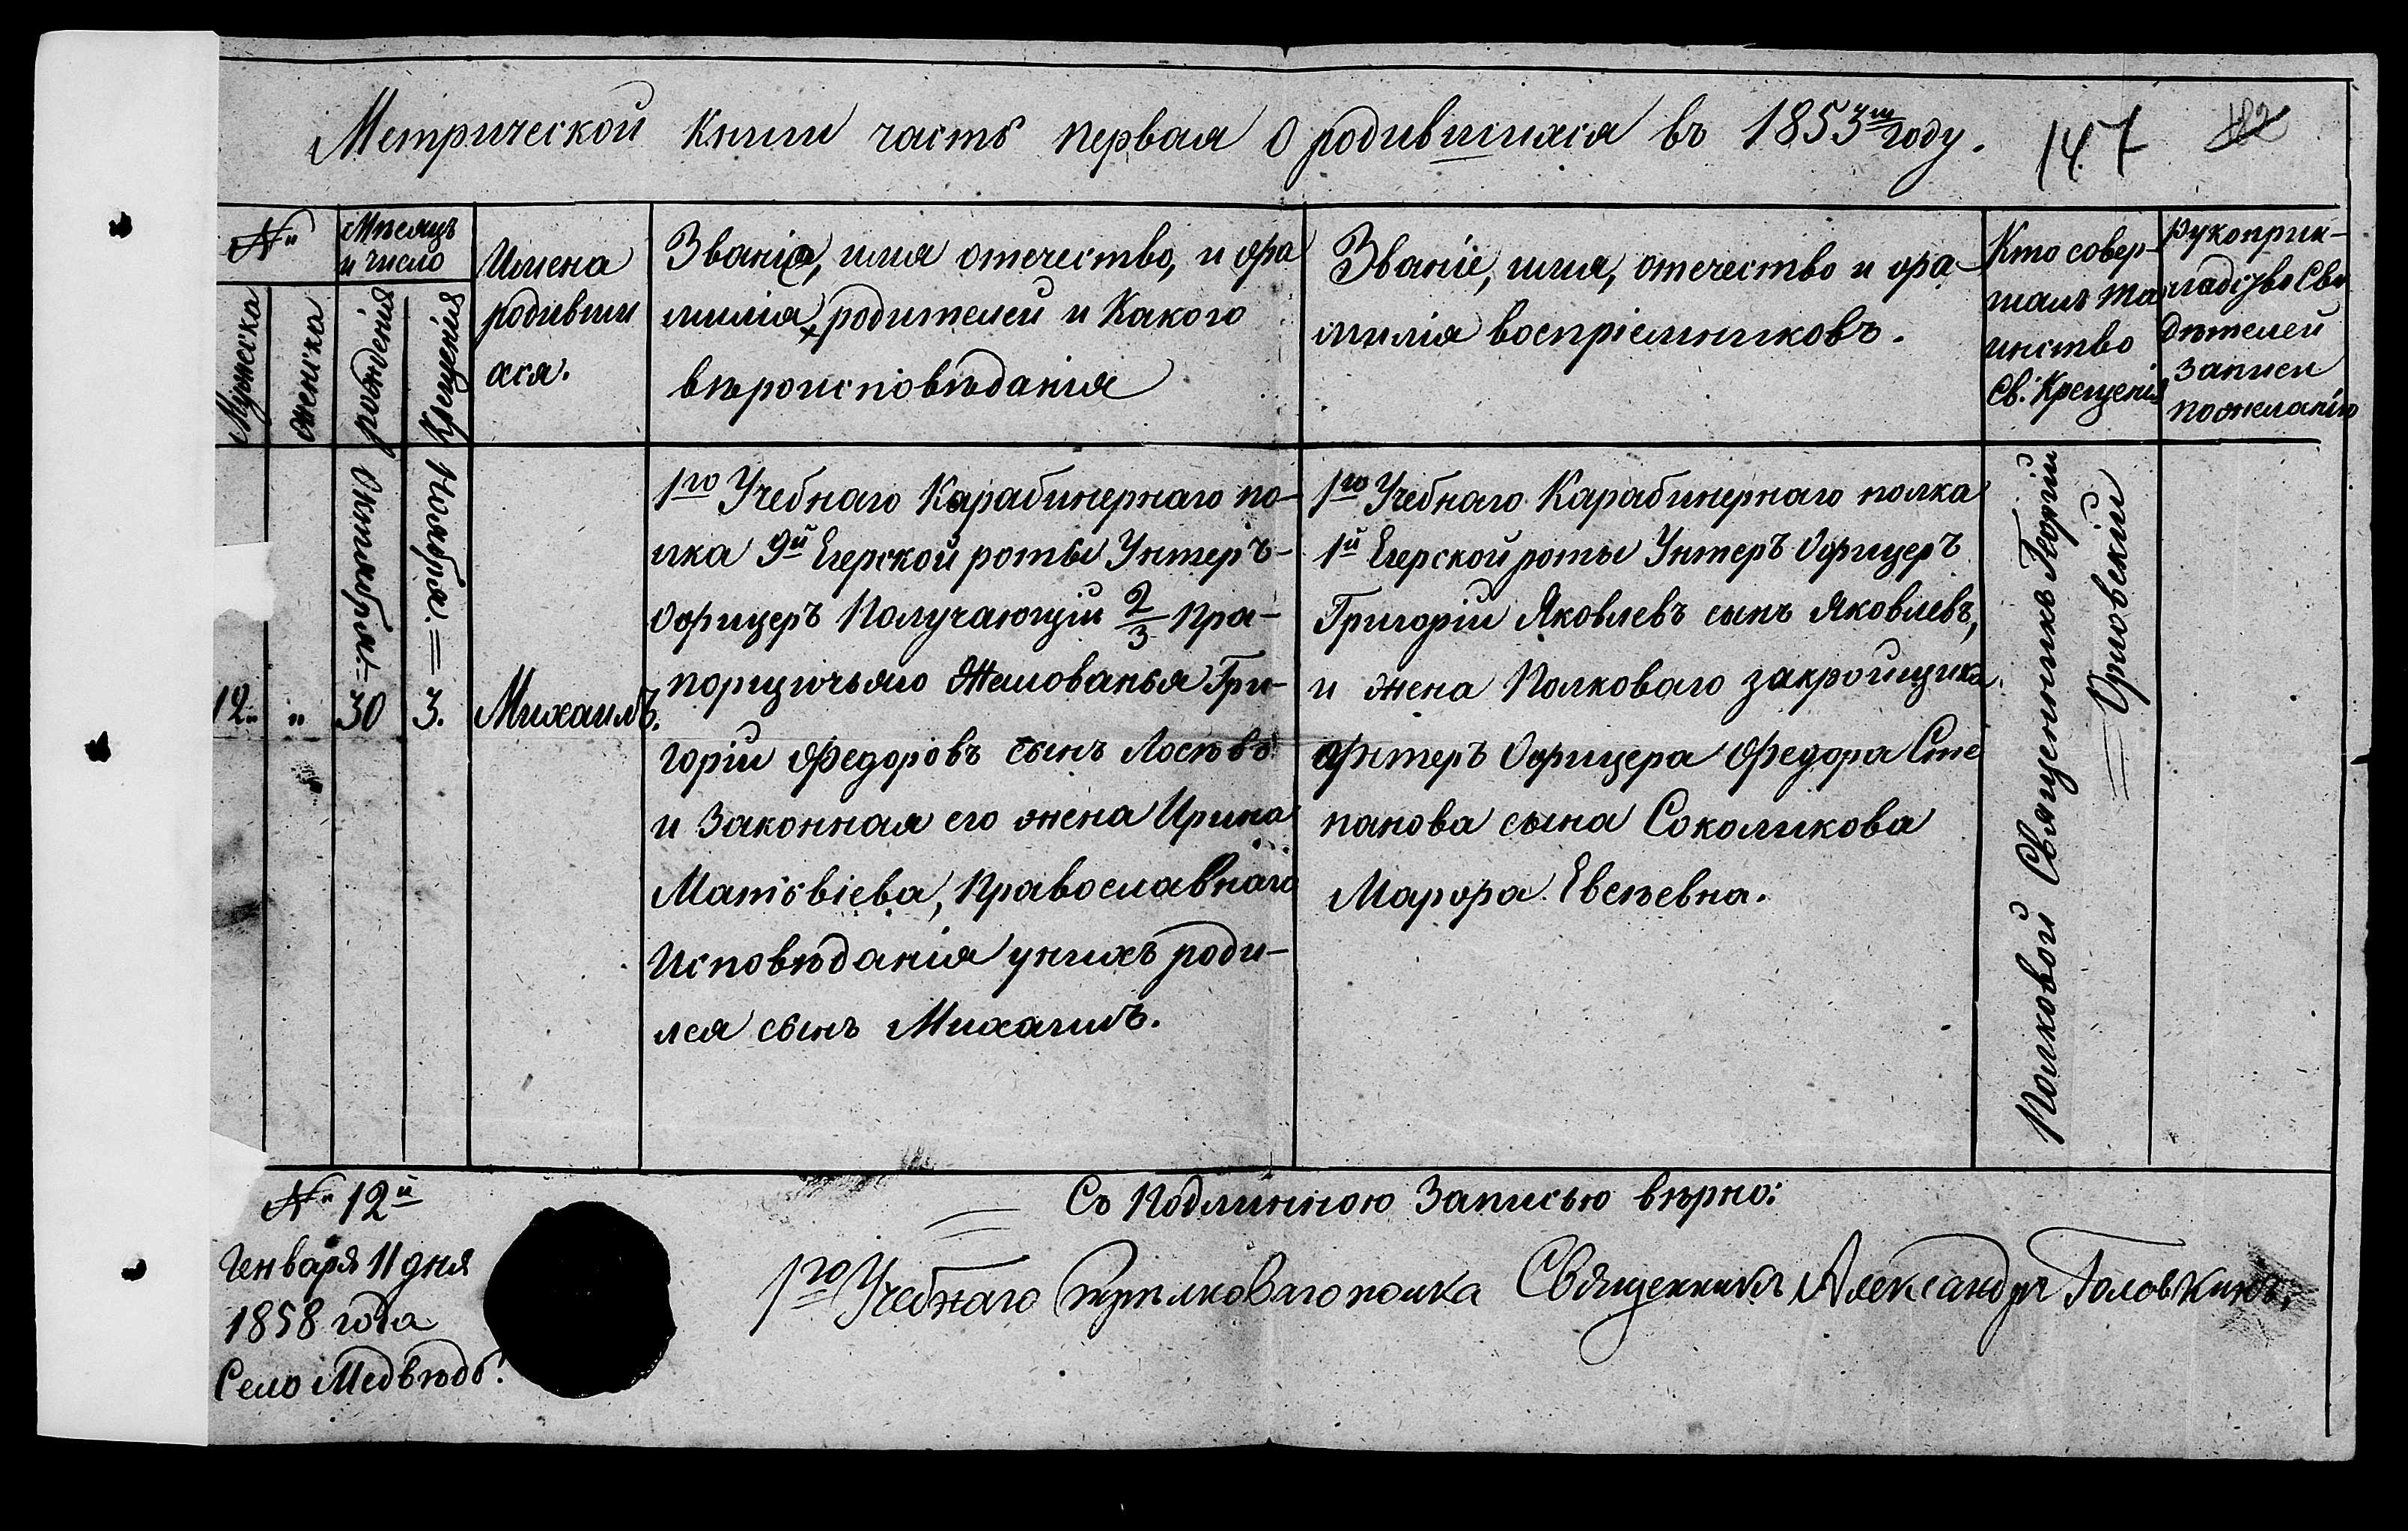 Метрической Книги часть первая о родившихся въ 1853м году.
147
182
№
Мѣсяцъ
и число
Мужеска
Женска
рождения
Крещенія
Имена
родивши
хся.
Званіе, имя отечество, и фа
милія родителей и Какого
вѣроисповѣданія
Званіе, имя, отечество и фа-
милія воспріемниковъ.
Кто совер-
шалъ та
инство
Св: Крещенія
Рукоприк-
ладство Сви
дѣтелей
записи
пожеланію
12
"
Октября:=
30
Ноября:=
3.
Михаилъ.
1го Учебнаго Карабинернаго по-
лка 9й Егерской роты Унтеръ-
Офицеръ Получающій 2/3 Пра-
порщичьяго Жалованья Гри-
горій Федоровъ сынъ Лосѣвъ
и Законная его жена Ирина
Матѳвіева, Православнаго
Исповѣданія унихъ роди-
лся сынъ Михаилъ.
1го Учебнаго Карабинернаго полка
1й Егерской роты Унтеръ Офицеръ
Григорій Яковлевъ сынъ Яковлевъ,
и жена Полковаго закройщика
Унтеръ Офицера Федора Сте
панова сына Соколикова
Марфа Евсѣевна.
Полковой Священникъ Георгій
Орловскій
№ 12й
Генваря 11 дня
1858 года
Село Медвѣдь.
Съ Подлинною Записью вѣрно:
1го Учебнаго Стрѣлковаго полка Священникъ Александръ Головкинъ.